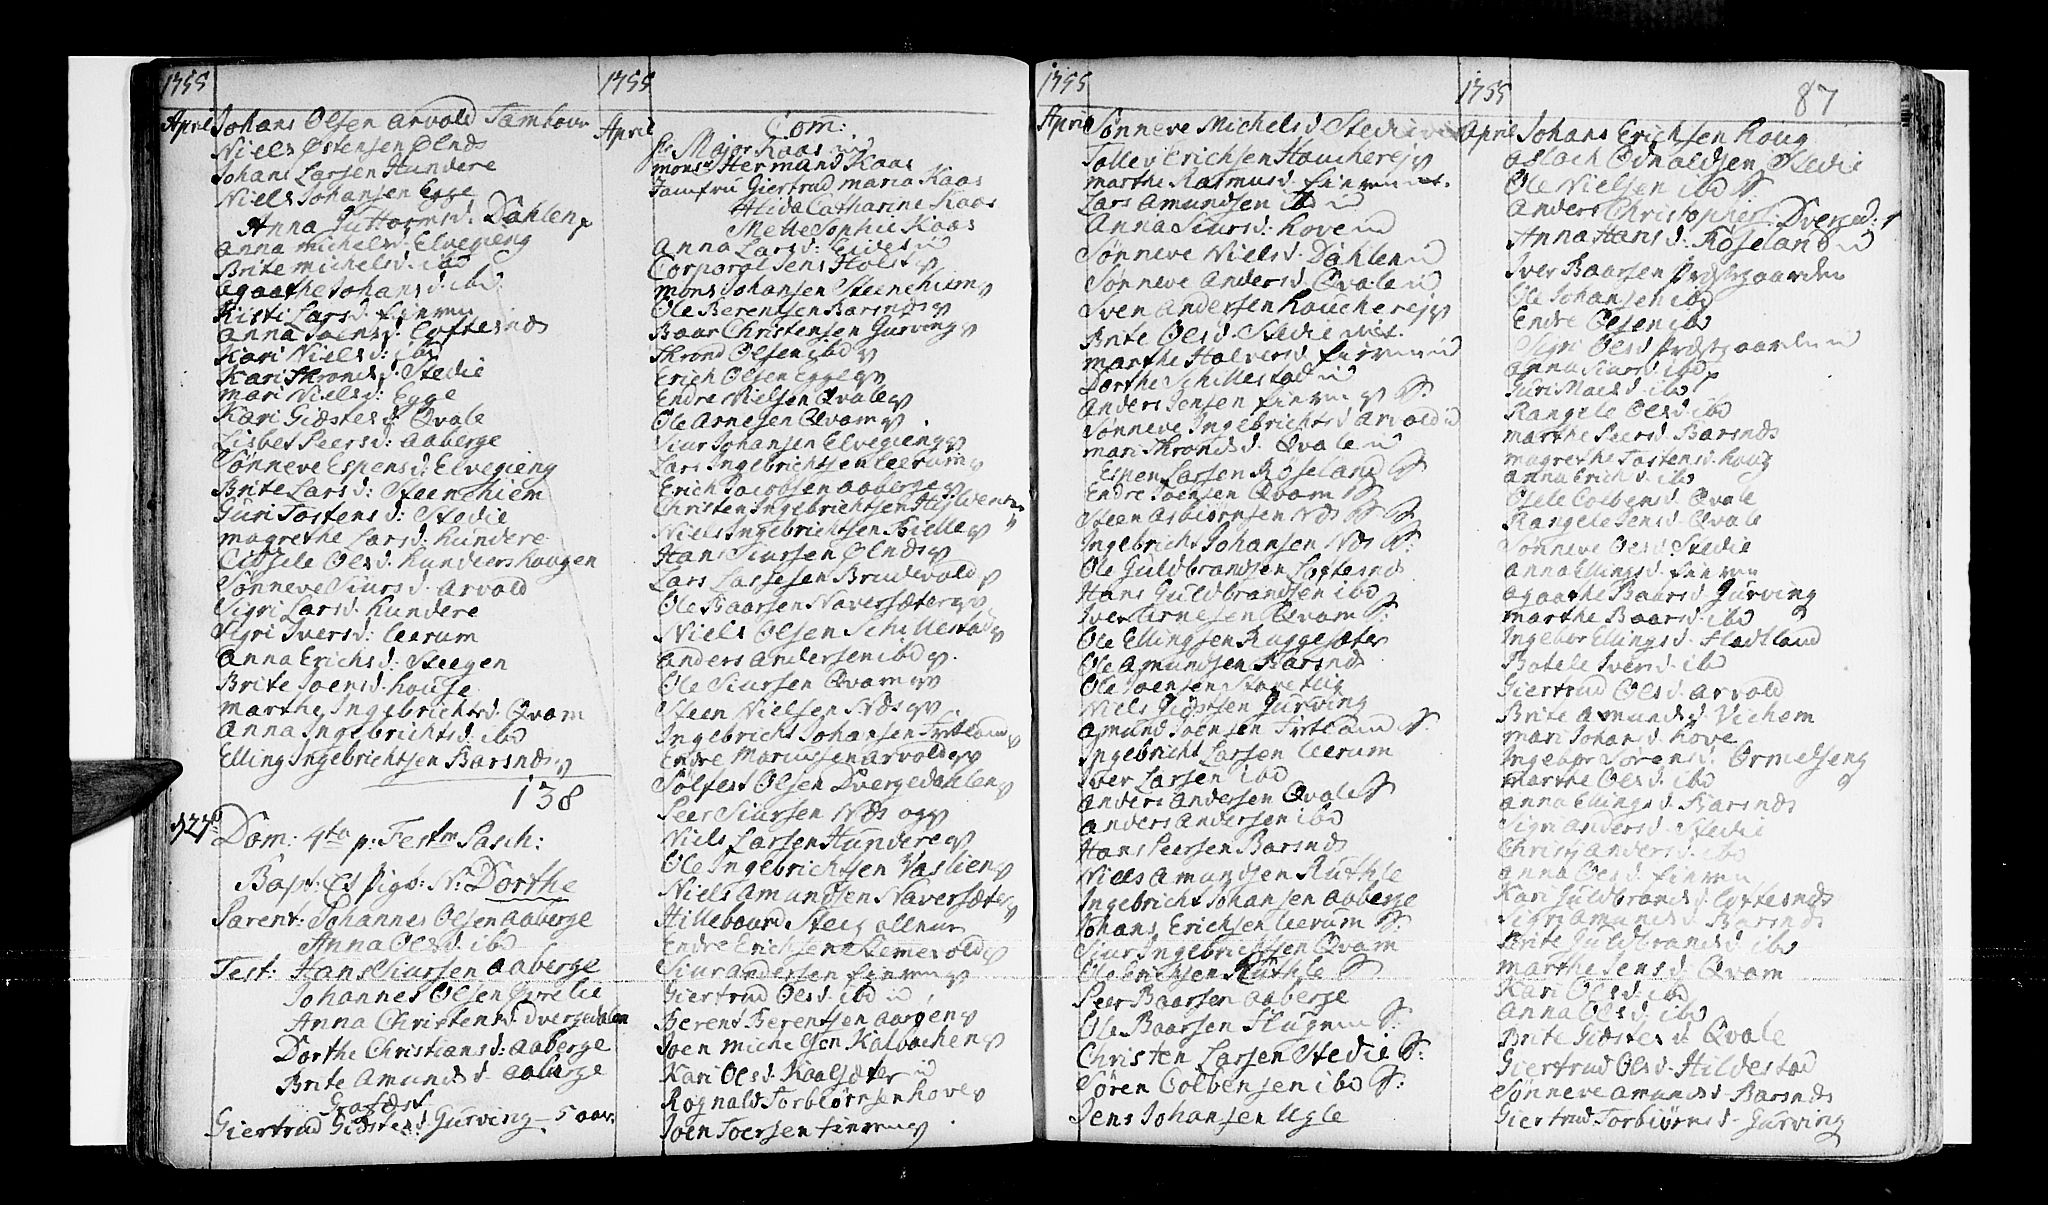 1755
April
Johans Olsen Arvold Tambour
Niels Østensen Ølnæs
Johans Larsen Hundere
Niels Johansen Egge
Anna Guttormsd: Dahlen
Anna Michelsd: Elvegieng
Brite Michelsd: ibd
Agaathe Johansd: ibd
Kisti Larsd:
Anna Joensd: Loftesnæs
Kari Nielsd: ibd
Kari Thronsd: Stedie
Mari Nielsd: Egge
Kari Giøstesd: Qvale
Lisbet Peersd: Aaberge
Sønneve Espensd: Elvegieng
Brite Larsd: Steenhiem
Guri Tostensd: Stedie
Magrethe Larsd: Hundere
Cidzele Olsd: Hundershougen
Sønneve Siursd: Arvold
Sigri Larsd: Hundere
Sigri Iversd: Leerum
Anna Erichsd: Steegen
Brite Joensd: Houge
Marthe Ingebrichtsd: Qvam
Anna Ingebrichtsd: ibd
Elling Ingebrichtsen Barsnæs
138
d 27de
Dom: 4ta p: Festm Pasch:
Bapt: Est pige: N: Dorthe
Parent: Johannes Olsen Aaberge
Anna Olsd: ibd
Test: Hans Siursen Aaberge
Johannes Olsen
Anna Christensd: Dvergedalen
Dorthe Christiansd: Aaberge
Brite Amundsd: Aaberge
Grafæst
Giertrud Giøstesd: Gurving 5 aar.
1755
April
Com:
Hr Major Kaas
Mons: Hermand Kaas
Jomfru Giertrud Maria Kaas
Alida Catharine Kaas
Mette Sophie Kaas
Anna Larsd: Eides
Corporal Jens Holst
Mons Johansen Steenhium
Ole Berentsen Barsnæs
Baar Christensen Gurving
Thrond Olsen ibd
Erich Olsen Egge
Endre Nielsen Qvale
Ole Arnesen Qvam
Siur Johansen Elvegieng
Lars Ingebrichtsen Leerum
Erich Jacobsen Aaberge
Christen Ingebrichtsen
Niels Ingebrichtsen Bielle
Hans Siursen Ølnæs
Lars Lassesen Brudevold
Ole Baarsen Naversæter
Niels Olsen Schillestad
Anders Andersen ibd
Ole Siursen Qvam
Steen Nielsen Næs
Ingebricht Johansen Fretland
Endre Mariussen Arvold
Sølfest Olsen Dvergedahlen
Peer Siursen Næs og
Niels Larsen Hundere
Ole Ingebrichtsen Vaslien
Niels Amundsen Naversæter
Hillebourd Steig
Endre Erichsen
Siur Andersen
Giertrud Olsd: ibd
Berent Berentsen Aarøen
Joen Michelsen Kalbachen
Kari Olsd: Kaalsæter
Rognald Torbiørnsen Hove
Joen Joersen
1755
April
Sønneve Michelsd: Stedie
Tollev Erichsen Houcherej
Marthe Rasmusd:
Lars Amundsen ibd
Anna Siursd: Hove
Sønneve Nielsd: Dahlen
Sønneve Andersd: Qvale
Sven Andersen Houcherej
Brite Olsd: Stedie
Marthe Halversd:
Dorthe Schillestad
Anders Jensen
Sønneve Ingebrichtsd: Arvold
Mari Thronsd: Qvale
Espen Larsen Røseland
Endre Joensen Qvam
Steen Asbiørnsen Næs
Ingebricht Johansen Næs
Ole Guldbrandsen Loftesnæs
Hans Guldbrandsen ibd
Iver Arnesen Qvam
Ole Ellingsen Ruggesæter
Ole Amundsen Barsnæs
Ole Joensen Stoveteig
Niels Giøstsen Gurving
Amund Joensen Fretland
Ingebricht Larsen Leerum
Iver Larsen ibd
Anders Andersen Qvale
Anders Andersen ibd
Hans Peersen Barsnæs
Niels Amundsen Ruthle
Ingebricht Johansen Aaberge
Johans Erichsen Leerum
Siur Ingebrichtsen Qvam
Ole Erichsen Ruthle
Peer Baarsen Aaberge
Ole Baarsen Flugem
Christen Larsen Stedie
Søren Colbensen ibd
Jens Johansen Ugle
1755
87
April
Johans Erichsen Houg
Aslach Ødnoldsen Stedie
Ole Nielsen ibd
Anders Christophers: Dverged:
Anna Hansd: Røseland
Iver Baarsen Præstgaarden
Ole Johansen ibd
Endre Olsen ibd
Sigri Olsd: Præstgaarden
Anna Siursd: ibd
Guri Maesd: ibd
Rangele Olsd: ibd
Marthe Peersd: Barsnæs
Magrethe Tostensd: Houg
Anna Erichsd: ibd
Colbensd: Qvale
Rangele Jensd: Qvale
Sønneve Olsd: Stedie
Anna Ellingsd:
Agaathe Baarsd: Gurving
Marthe Baarsd: ibd
Ingebor Ellingsd: Flatland
Botele Iversd: ibd
Giertrud Olsd: Arvold
Brite Amundsd: Vichem
Mari Johansd: Hove
Ingebor Sørensd: Ormelseng
Marthe Olsd: ibd
Anna Ellingsd: Barsnæs
Sigri Andersd: Stedie
Christj Andersd: ibd
Anna Olsd:
Kari Guldbrandsd: Loftesnæs
Sigri Amundsd: Barsnæs
Brite Guldbrandsd: ibd
Marthe Jensd: Qvam
Kari Olsd: ibd
Anna Olsd: ibd
Brite Giøstesd: Qvale
Giertrud Olsd: Hildestad
Sønneve Amundsd: Barsnæs
Giertrud Torbiørnsd: Gurving